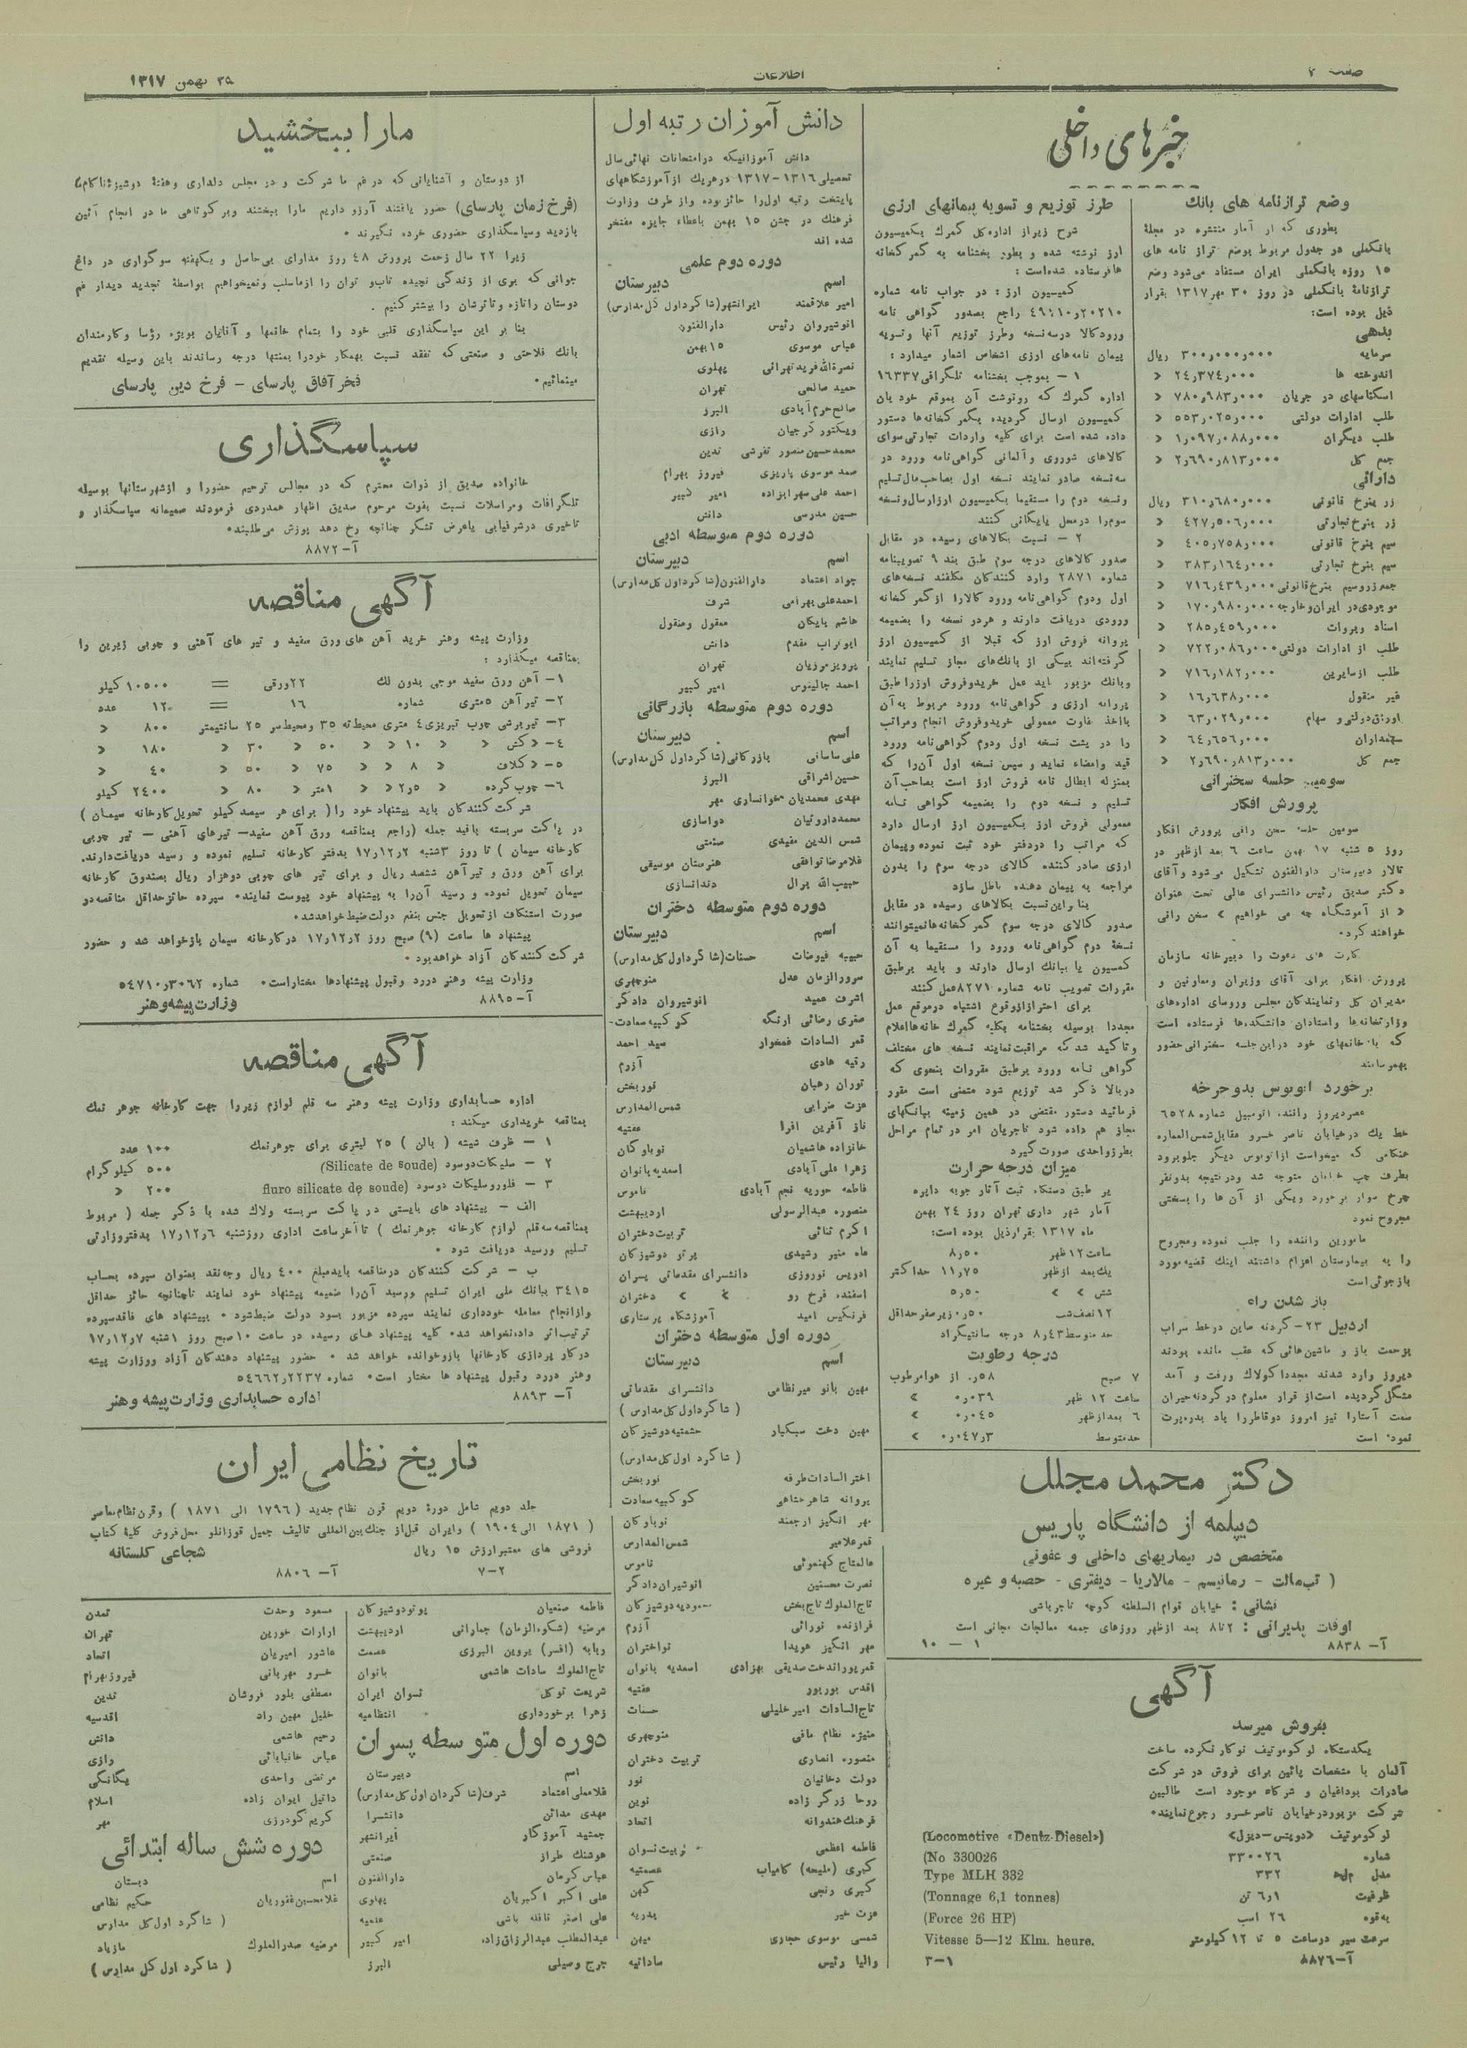 صفحه ۲
اطلاعات
۲۵ بهمن ۱۳۱۷
خبرهای داخلی
وضع ترازنامه های بانک
بطوری که از آمار منتشره در مجلهٔ
بانکملی در جدول مربوط بوضع تراز نامه های
۱۵ روزه بانکملی ایران مستفاد می‌شود وضع
ترازنامهٔ بانکملی در روز ۳۰ مهر ۱۳۱۷ بقرار
ذیل بوده است:
بدهی
سرمایه ۳۰۰٫۰۰۰٫۰۰۰ ریال
اندوخته ها ۲۴٫۳۷۴٫۰۰۰ «
اسکناسهای در جریان ۷۸۰٫۹۸۳٫۰۰۰ «
طلب ادارات دولتی ۵۵۳٫۰۲۵٫۰۰۰ «
طلب دیگران ۱٫۰۹۷٫۰۸۸٫۰۰۰ «
جمع کل ۲٫۶۹۰٫۸۱۳٫۰۰۰ «
دارائی
زر بنرخ قانونی ۳۱۰٫۶۸۰٫۰۰۰ ریال
زر بنرخ تجارتی ۴۲۷٫۵۰۶٫۰۰۰ «
سیم بنرخ قانونی ۴۰۵٫۷۵۸٫۰۰۰ «
سیم بنرخ تجارتی ۳۸۳٫۱۶۴٫۰۰۰ «
جمع زروسیم بنرخ قانونی ۷۱۶٫۴۳۹٫۰۰۰ «
موجودی در ایران وخارجه ۱۷۰٫۹۸۰٫۰۰۰ «
اسناد وبروات ۲۸۵٫۴۵۹٫۰۰۰ «
طلب از ادارات دولتی ۷۲۲٫۰۸۶٫۰۰۰ «
طلب از سایرین ۷۱۶٫۱۸۲٫۰۰۰ «
غیر منقول ۱۶٫۶۳۸٫۰۰۰ «
اوراق دولتی و سهام ۶۳٫۰۲۹٫۰۰۰ «
سهمداران ۶۴٫۶۵۶٫۰۰۰ «
جمع کل ۲٫۶۹۰٫۸۱۳٫۰۰۰ «
سومین جلسه سخنرانی
پرورش افکار
سومین جلسه سخن رانی پرورش افکار
روز ۵ شنبه ۱۷ بهمن ساعت ۶ بعد ازظهر در
تالار دبیرستان دارالفنون تشکیل می‌شود و آقای
دکتر صدیق رئیس دانشسرای عالی تحت عنوان
« از آموزشگاه چه می خواهیم » سخن رانی
خواهند کرد.
کارت های دعوت را دبیرخانه سازمان
پرورش افکار برای آقای وزیران ومعاونین و
مدیران کل و نمایندگان مجلس وروسای اداره‌های
وزارتخانه‌ها واستادان دانشکده‌ها فرستاده است
که با خانمهای خود دراین جلسه سخنرانی حضور
بهم رسانند
برخورد اتوبوس بدوچرخه
عصر دیروز راننده اتومبیل شماره ۶۵۲۸
خط یک در خیابان ناصر خسرو مقابل شمس العماره
هنگامی که میخواست از اتوبوس دیگر جلو برود
بطرف چپ خیابان متوجه شد ودرنتیجه بدو نفر
چرخ سوار برخورد ویکی از آن ها را بسختی
مجروح نمود
مامورین راننده را جلب نموده ومجروح
را به بیمارستان اعزام داشتند اینک قضیه مورد
بازجوئی است
باز شدن راه
اردبیل ۲۳- گردنه صاین درخط سراب
بزحمت باز و ماشین هائی که عقب مانده بودند
دیروز وارد شدند مجددا کولاک ورفت و آمد
مشکل گردیده است از قرار معلوم در گردنه حیران
سمت آستارا نیز امروز دو قاطر را باد بدره پرت
نموده است
طرز توزیع و تسویه پیمانهای ارزی
شرح زیر از اداره کل گمرک بکمیسیون
ارز نوشته شده و بطور بخشنامه به گمرکخانه
ها فرستاده شده‌است :
کمیسیون ارز : در جواب نامه شماره
۴۹٫۱۰٫۲۰۲۱۰ راجع بصدور گواهی نامه
ورود کالا درسه نسخه وطرز توزیع آنها وتسویه
پیمان نامه‌های ارزی اشخاص اشعار میدارد :
۱ - بموجب بخشنامه تلگرافی ۱۶۳۳۷
اداره گمرک که رونوشت آن بموقع خود بان
کمیسیون ارسال گردیده بگمرکخانه‌ها دستور
داده شده است برای کلیه واردات تجارتی سوای
کالاهای شوروی و آلمانی گواهی نامه ورود در
سه نسخه صادر نمایند نسخه اول بصاحب مال تسلیم
ونسخه دوم را مستقیما بکمیسیون ارز ارسال ونسخه
سوم را در محل بایگانی کنند
۲ - نسبت بکالاهای رسیده در مقابل
صدور کالاهای درجه سوم طبق بند ۹ تصویبنامه
شماره ۲۸۷۱ وارد کنندگان مکلفند نسخه‌های
اول ودوم گواهی نامه ورود کالا را از گمرکخانه
ورودی دریافت دارند و هر دو نسخه را بضمیمه
پروانه فروش ارز که قبلا از کمیسیون ارز
گرفته‌اند بیکی از بانک‌های مجاز تسلیم نمایند
وبانک مزبور باید عمل خرید وفروش ارز را طبق
پروانه ارزی و گواهی‌نامه ورود مربوط به آن
بااخذ تفاوت معمولی خرید وفروش انجام ومراتب
را در پشت نسخه اول ودوم گواهی نامه ورود
قید وامضاء نماید و سپس نسخه اول آن را که
بمنزله ابطال نامه فروش ارز است بصاحب آن
تسلیم و نسخه دوم را بضمیمه گواهی نامه
معمولی فروش ارز بکمیسیون ارز ارسال دارد
که مراتب را در دفتر خود ثبت نموده و پیمان
ارزی صادر کننده کالای درجه سوم را بدون
مراجعه به پیمان دهنده باطل سازد
بنا براین نسبت بکالاهای رسیده در مقابل
صدور کالای درجه سوم گمرکخانه‌ها نمیتوانند
نسخهٔ دوم گواهی‌نامه ورود را مستقیما به آن
کمسیون یا ببانک ارسال دارند و باید برطبق
مقررات تصویب نامه شماره ۸۲۷۱ عمل کنند
برای احتراز از وقوع اشتباه درموقع عمل
مجددا بوسیله بخشنامه بکلیه گمرک خانه‌ها اعلام
وتاکید شد که مراقبت نمایند نسخه های مختلف
گواهی نامه ورود برطبق مقررات بنحوی که
دربالا ذکر شد توزیع شود متمنی است مقرر
فرمائید دستور مقتضی در همین زمینه ببانکهای
مجاز هم داده شود تا جریان امر در تمام مراحل
بطرز واحدی صورت گیرد
میزان درجه حرارت
بر طبق دستگاه ثبت آثار جویه دایره
آمار شهر داری تهران روز ۲۴ بهمن
ماه ۱۳۱۷ بقرار ذیل بوده است:
ساعت ۱۲ ظهر ۸٫۵۰
یک بعد ازظهر ۱۱٫۷۵ حداکثر
شش » » ۵٫۵۰
۱۲ نصف شب ۰٫۵۰ زیر صفر حداقل
حد متوسط ۸٫۴۳ درجه سانتیگراد
درجه رطوبت
۷ صبح ۰٫۵۸ از هوا مرطوب
ساعت ۱۲ ظهر ۰٫۰۳۹ »
۶ بعد ازظهر ۰٫۰۴۵ »
حد متوسط ۰٫۰۴۷٫۳ »
دکتر محمد مجلل
دیپلمه از دانشگاه پاریس
متخصص در بیماریهای داخلی و عفونی
( تب‌مالت - رماتیسم - مالاریا - دیفتری - حصبه و غیره
نشانی : خیابان قوام السلطنه کوچه تاجرباشی
اوقات پذیرائی : ۲ تا ۸ بعد ازظهر روزهای جمعه معالجات مجانی است
آ- ۸۸۳۸ ۱ - ۱۰
آگهی
بفروش میرسد
یکدستگاه لوکوموتیف نو کار نکرده ساخت
آلمان با مشخصات پائین برای فروش در شرکت
صادرات بوداغیان و شرکاء موجود است طالبین
شرکت مزبور در خیابان ناصرخسرو رجوع نمایند.
لوکوموتیف «دویتس-دیزل» (Locomotive «Dentz-Diesel»)
شماره ۳۳۰۰۲۶ (No 330026
مدل م‌ل‌ه ۳۳۲ Type MLH 332
ظرفیت ۶٫۱ تن (Tonnage 6,1 tonnes)
بقوه ۲۶ اسب (Force 26 HP)
سرعت سیر درساعت ۵ تا ۱۲ کیلومتر Vitesse 5—12 Klm. heure.
آ-۸۸۷۶ ۳-۱
دانش آموزان رتبه اول
دانش آموزانیکه درامتحانات نهائی سال
تحصیلی ۱۳۱۶-۱۳۱۷ در هریک از آموزشگاههای
پایتخت رتبه اول را حائز بوده و از طرف وزارت
فرهنگ در جشن ۱۵ بهمن باعطاء جایزه مفتخر
شده اند
دوره دوم علمی
اسم دبیرستان
امیر علاقمند ایرانشهر(شاگرد اول کل مدارس)
انوشیروان رئیس دارالفنون
عباس موسوی ۱۵ بهمن
نصرةالله فرید تهرانی پهلوی
حمید صالحی تهران
صالح خرم آبادی البرز
ویکتور گرجیان رازی
محمدحسین منصور تفرشی تدین
صمد موسوی پاریزی فیروز بهرام
احمد علی سهرابزاده امیر کبیر
حسین مدرسی دانش
دوره دوم متوسطه ادبی
اسم دبیرستان
جواد اعتماد دارالفنون(شاگرد اول کل مدارس)
احمدعلی بهرامی شرف
هاشم بایکان معقول ومنقول
ابوتراب مقدم دانش
پرویز مرزبان تهران
احمد جالینوس امیر کبیر
دوره دوم متوسطه بازرگانی
اسم دبیرستان
علی ساسانی بازرگانی(شاگرد اول کل مدارس)
حسین اشراقی البرز
مهدی محمدیان خوانساری مهر
محمد داروئیان دواسازی
شمس الدین مفیدی صنعتی
غلامرضا توافقی هنرستان موسیقی
حبیب الله پرال دندانسازی
دوره دوم متوسطه دختران
اسم دبیرستان
حبیبه فیوضات حسنات(شاگرد اول کل مدارس)
سرورالزمان عدل منوچهری
اشرف عمید انوشیروان دادگر
صغری رضائی ارنگه کوکبیه سعادت
قمر السادات غمخوار سید احمد
رقیه هادی آزرم
توران رهبان نوربخش
عزت ضرابی شمس المدارس
ناز آفرین افرا عفتیه
خانزاده هاشمیان نوباوگان
زهرا علی آبادی اسعدیه بانوان
فاطمه حوریه نجم آبادی ناموس
منصوره عبدالرسولی اردیبهشت
اکرم ثنائی تربیت دختران
ماه منیر رشیدی پرتو دوشیزگان
ادریس نوروزی دانشسرای مقدماتی پسران
اسفند فرخ رو » » دختران
فرنگیس امید آموزشگاه پرستاری
دوره اول متوسطه دختران
اسم دبیرستان
مهین بانو میرنظامی دانشسرای مقدماتی
( شاگرد اول کل مدارس )
مهین دخت سبکیار حشمتیه دوشیزگان
( شاگرد اول کل مدارس )
اختر السادات طرفه نوربخش
پروانه شاهرخشاهی کوکبیه سعادت
مهر انگیز ارجمند نوباوگان
قمر علامیر شمس المدارس
عالمتاج کهنموئی ناموس
نصرت محسنین انوشیروان دادگر
تاج الملوک تاج بخش دوشیزگان
فرازنده نورائی آزرم
مهر انگیز هویدا نواختران
قمر پوراندخت صدیقی بهزادی اسعدیه بانوان
اقدس بوربور عفتیه
تاج السادات امیر خلیلی حسنات
منیژه نظام مافی منوچهری
منصوره انصاری تربیت دختران
دولت دخانیان نور
روحا زرگر زاده نوین
فرهنگ هندوانه اتحاد
فاطمه اعظمی تربیت نسوان
کبری (ملیحه) کامیاب عصمتیه
کبری رنجی کهن
عزت خیر بدریه
شمسی موسوی حجازی میهن
والیا رئیس ساداتیه
مارا ببخشید
از دوستان و آشنایانی که در غم ما شرکت و در مجلس دلداری وهفتهٔ دوشیزهٔ ناکام ما
(فرخ زمان پارسای) حضور یافتند آرزو داریم مارا ببخشند وبر کوتاهی ما در انجام آئین
بازدید وسپاسگذاری حضوری خرده نگیرند .
زیرا ۲۲ سال زحمت پرورش ۴۸ روز مدارای بی‌حاصل و یکهفته سوگواری در داغ
جوانی که بوی از زندگی نچیده تاب‌و توان را ازماسلب ونمیخواهیم بواسطهٔ تجدید دیدار غم
دوستان را تازه وتاثرشان را بیشتر کنیم .
بنا بر این سپاسگذاری قلبی خود را بتمام خانمها و آقایان بویژه رؤسا و کارمندان
بانک فلاحتی و صنعتی که تفقد نسبت بهمکار خود را بمنتها درجه رساندند باین وسیله تقدیم
مینمائیم . فخر آفاق پارسای - فرخ دین پارسای
سپاسگذاری
خانواده صدیق از ذوات محترم که در مجالس ترحیم حضورا و از شهرستانها بوسیله
تلگرافات ومراسلات نسبت بفوت مرحوم صدیق اظهار همدردی فرمودند صمیمانه سپاسگذار و
تاخیری درشرفیابی یا عرض تشکر چنانچه رخ دهد پوزش می‌طلبند.
آ-۸۸۷۲
آگهی مناقصه
وزارت پیشه وهنر خرید آهن های ورق سفید و تیر های آهنی و چوبی زیرین را
بمناقصه میگذارد :
۱- آهن ورق سفید موجی بدون لک ۲۲ ورقی = ۱۰۵۰۰ کیلو
۲- تیر آهن ۵ متری شماره ۱۶ = ۱۲۰ عدد
۳- تیر برشی چوب تبریزی ۴ متری محیط ته ۳۵ ومحیط سر ۲۵ سانتیمتر ۸۰۰ «
۴- « کش « « ۱۰ « « ۵۰ « ۳۰ « ۱۸۰ «
۵- « کلاف « ۸ « « ۷۵ « ۵۰ « ۴۰ «
۶- چوب گرده « ۲٫۵ « « ۱ متر « ۸۰ « ۲۴۰۰ کیلو
شرکت کنندگان باید پیشنهاد خود را ( برای هر سیصد کیلو تحویل کارخانه سیمان )
در پاکت سربسته باقید جمله (راجع بمناقصه ورق آهن سفید- تیرهای آهنی - تیر چوبی
کارخانه سیمان ) تا روز ۳شنبه ۱۷٫۱۲٫۲ بدفتر کارخانه تسلیم نموده و رسید دریافت دارند.
برای آهن ورق و تیرآهن ششصد ریال و برای تیر های چوبی دوهزار ریال بصندوق کارخانه
سیمان تحویل نموده و رسید آن را به پیشنهاد خود پیوست نمایند. سپرده حائز حداقل مناقصه در
صورت استنکاف از تحویل جنس بنفع دولت ضبط خواهد شد.
پیشنهاد ها ساعت (۹) صبح روز ۱۷٫۱۲٫۲ در کارخانه سیمان باز خواهد شد و حضور
شرکت کنندگان آزاد خواهد بود .
وزارت پیشه وهنر دررد وقبول پیشنهادها مختار است. شماره ۵۴۷۱۰٫۳۰۶۲
آ- ۸۸۹۵ وزارت پیشه وهنر
آگهی مناقصه
اداره حسابداری وزارت پیشه وهنر سه قلم لوازم زیر را جهت کارخانه جوهر نمک
بمناقصه خریداری میکند :
۱ - ظرف شیشه ( بالن ) ۲۵ لیتری برای جوهرنمک ۱۰۰ عدد
۲ - سلیکات دوسود (Silicate de soude) ۵۰۰ کیلو گرام
۳ - فلوروسلیکات دوسود (fluro silicate de soude) ۲۰۰ «
الف - پیشنهاد های بایستی در پاکت سربسته ولاک شده با ذکر جمله ( مربوط
بمناقصه سه قلم لوازم کارخانه جوهرنمک ) تا آخر ساعت اداری روز شنبه ۱۷٫۱۲٫۶ بدفتر وزارتی
تسلیم ورسید دریافت شود .
ب - شرکت کنندگان درمناقصه باید مبلغ ۴۰۰ ریال وجه نقد بعنوان سپرده بحساب
۳۴۱۵ ببانک ملی ایران تسلیم ورسید آن را ضمیمه پیشنهاد خود نمایند تا چنانچه حائز حداقل
و از انجام معامله خودداری نمایند سپرده مزبور بسود دولت ضبط شود . بپیشنهاد های فاقد سپرده
ترتیب اثر داده نخواهد شد. کلیه پیشنهاد های رسیده در ساعت ۱۰ صبح روز ۱ شنبه ۱۷٫۱۲٫۷
در کار پردازی کارخانها باز و خوانده خواهد شد . حضور پیشنهاد دهندگان آزاد ووزارت پیشه
وهنر دررد وقبول پیشنهاد ها مختار است. شماره ۵۴۶۶۲٫۲۲۳۷
آ- ۸۸۹۳ اداره حسابداری وزارت پیشه وهنر
تاریخ نظامی ایران
جلد دویم شامل دورهٔ دویم قرن نظام جدید ( ۱۷۹۶ الی ۱۸۷۱ ) وقرن نظام معاصر
( ۱۸۷۱ الی ۱۹۰۴ ) وایران قبل از جنگ بین المللی تالیف جمیل قوزانلو محل فروش کلیهٔ کتاب
فروشی های معتبر ارزش ۱۵ ریال شجاعی گلستانه
۷-۲ آ- ۸۸۰۶
فاطمه صنعیان دوشیزگان
مرضیه (شکوه‌الزمان) چمارانی اردیبهشت
ربابه (افسر) پروین البرزی عصمت
تاج الملوک سادات هاشمی بانوان
شریعت توکل نسوان ایران
زهرا برخورداری انتظامیه
دوره اول متوسطه پسران
اسم دبیرستان
غلامعلی اعتماد شرف(شاگردان اول کل مدارس)
مهدی مدائن دانشسرا
جمشید آموزگار ایرانشهر
هوشنگ طراز صنعتی
عباس کرمان دارالفنون
علی اکبر اکبریان پهلوی
علی اصغر قافله باشی علمیه
عبدالمطلب عبدالرزاق‌زاده امیر کبیر
جرج وسیلی البرز
مسعود وحدت تمدن
ارارات خورین تهران
عاشور امیریان اتحاد
خسرو مهربانی فیروز بهرام
مصطفی بلور فروشان تدین
خلیل مهین راد اقدسیه
رحیم هاشمی دانش
عباس خانبابائی رازی
مرتضی واحدی یگانگی
دانیل ایوان زاده اسلام
کریم گودرزی مهر
دوره شش ساله ابتدائی
اسم دبستان
غلامحسین غفوریان حکیم نظامی
( شاگرد اول کل مدارس
مرضیه صدرالملوک مازیاد
( شاگرد اول کل مدارس )